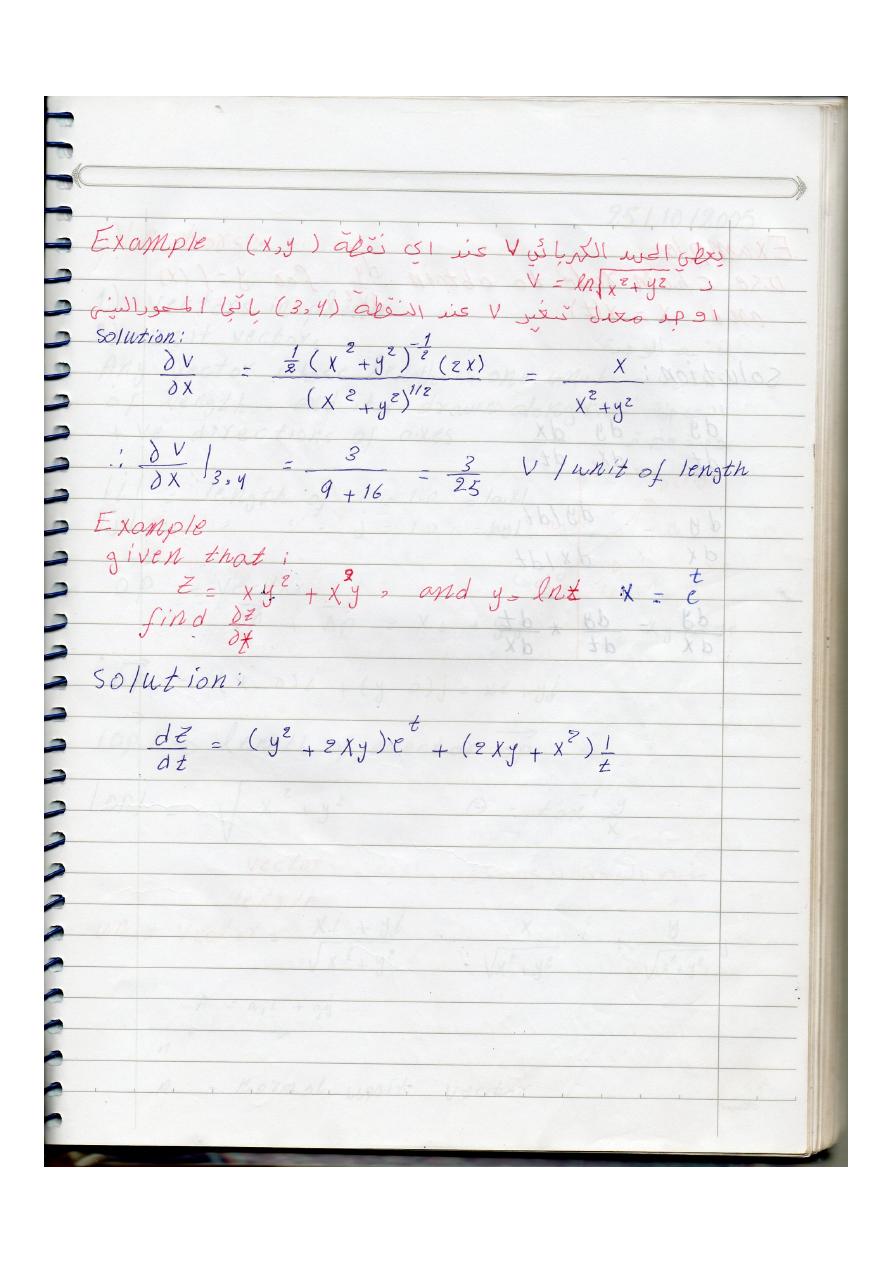 Example يعطي الجهد الكهربائي V عند اي نقطة (x,y)
د V = ln√(x² + y²)
اوجد معدل تغير V عند النقطة (3,4) باتجاه المحور السيني
Solution:
∂V/∂x = ½(x² + y²)^(-1/2) (2x) / (x² + y²)^(1/2) = x / (x² + y²)
∴ ∂V/∂x |3,4 = 3/(9+16) = 3/25 V / unit of length
Example
given that:
z = xy² + x²y , and y = lnt x = e^t
find ∂z/∂t
Solution:
dz/dt = (y² + 2xy)·e^t + (2xy + x²) 1/t